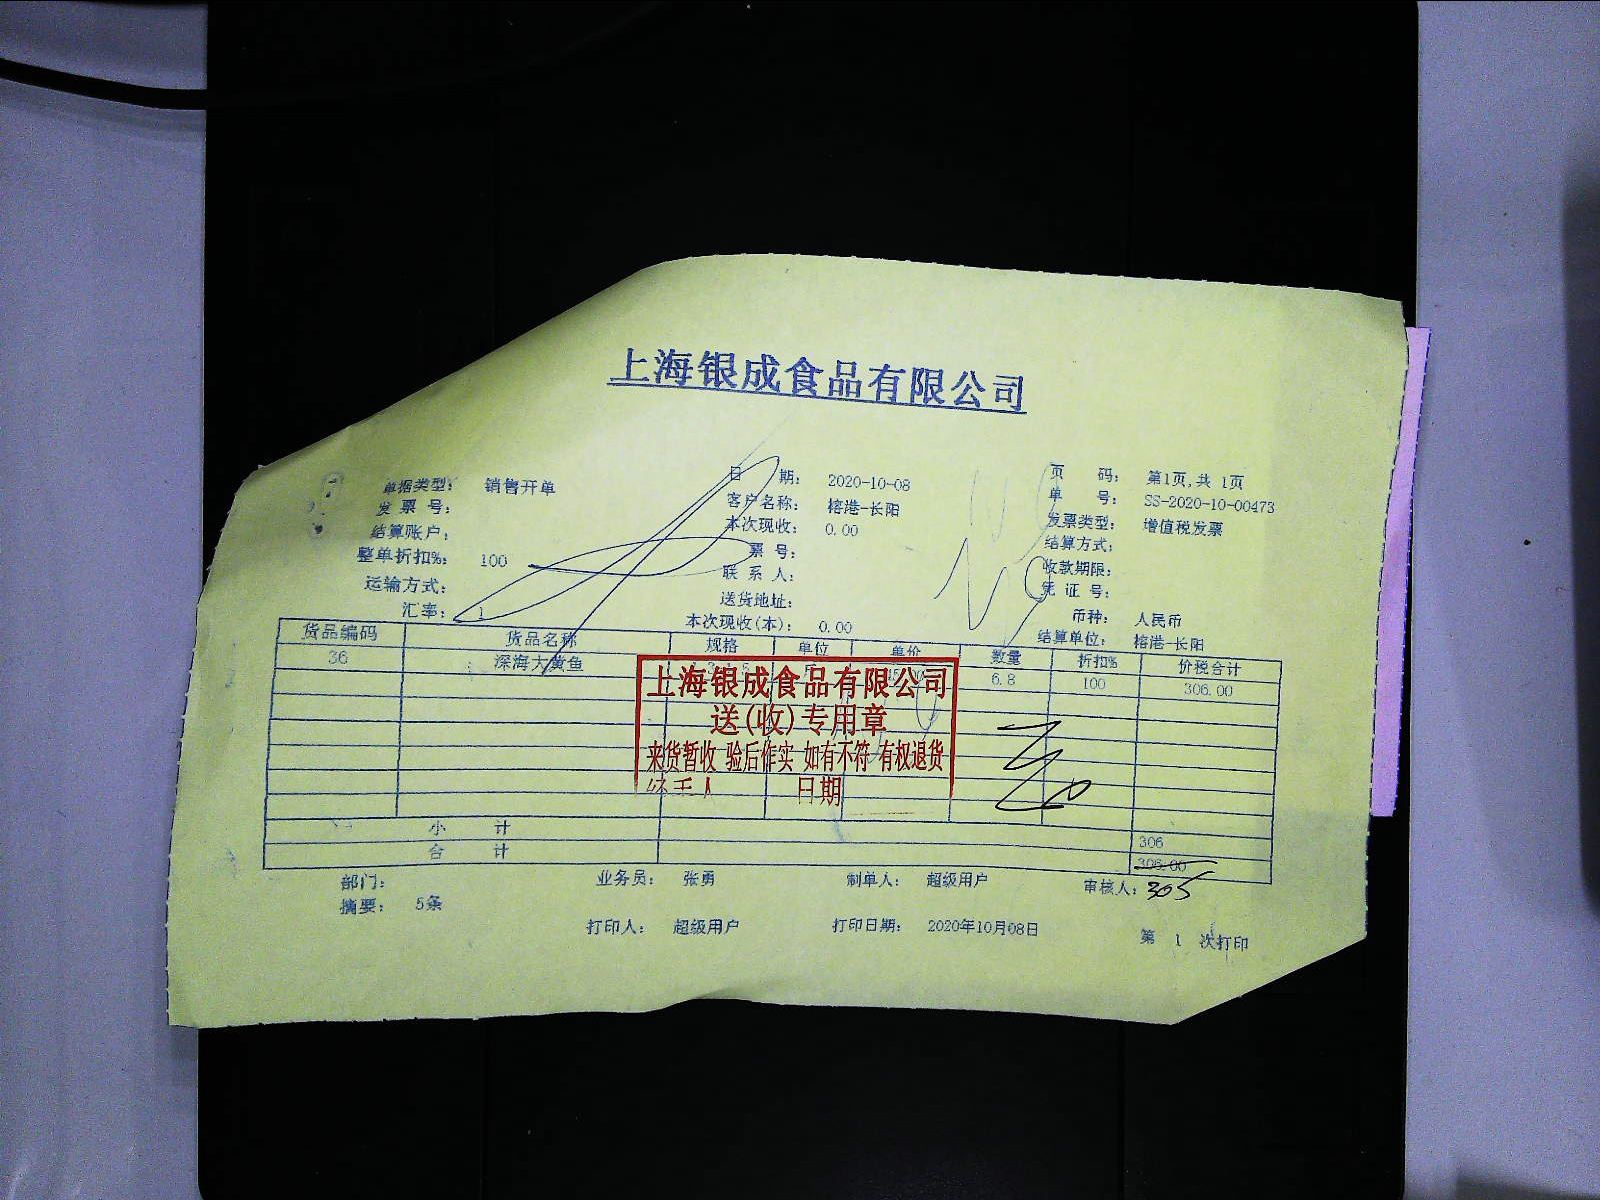 上海银成食品有限公司
单据类型: 销售开单 日 期: 2020-10-08 页 码: 第1页,共 1页
发 票 号: 客户名称: 榕港-长阳 单 号: SS-2020-10-00473
结算账户: 本次现收: 0.00 发票类型: 增值税发票
整单折扣%: 100 票 号: 结算方式:
运输方式: 联 系 人: 收款期限:
汇率: 1 送货地址: 凭 证 号:
本次现收(本): 0.00 币种: 人民币
结算单位: 榕港-长阳
货品编码 货品名称 规格 单位 单价 数量 折扣% 价税合计
36 深海大黄鱼 6.8 100 306.00
上海银成食品有限公司
送(收)专用章
来货暂收 验后作实 如有不符 有权退货
经手人 日期
小 计 306
合 计 306.00
305
部门: 业务员: 张勇 制单人: 超级用户 审核人:
摘要: 5条
打印人: 超级用户 打印日期: 2020年10月08日 第 1 次打印